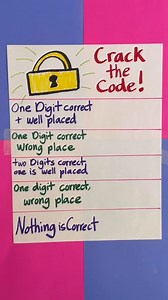 Crack
the
Code!
One Digit correct
+ well placed
One Digit correct
wrong place
two Digits correct,
one is well placed
One digit correct,
wrong place
Nothing is Correct